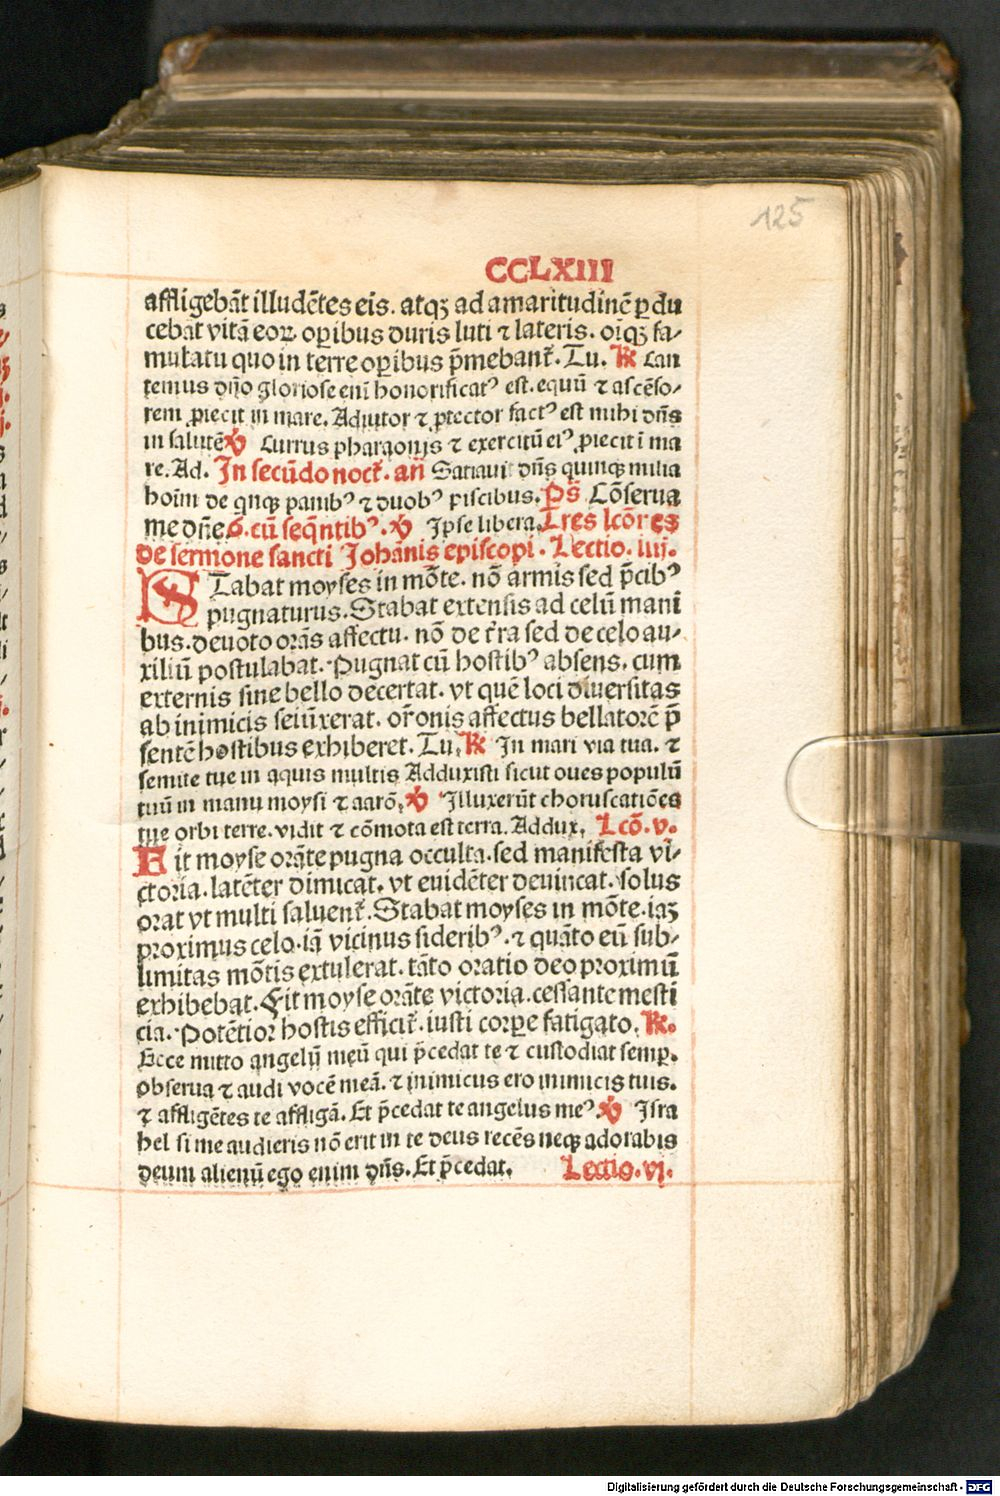 125
CCLXIII
affligebāt illudētes eis. atqꝫ ad amaritudinē ꝑdu
cebat vitā eoꝝ oꝑibus duris luti ⁊ lateris. oīqꝫ fa-
mulatu quo in terre oꝑibus p̄mebant̄. Tu. ℟ Can
temus dn̄o gloriose enī honorificatꝰ est. equū ⁊ ascēso-
rem ꝓiecit in mare. Adiutor ⁊ ꝓtector factꝰ est mihi dn̄s
in salutē ℣ Currus pharaonis ⁊ exercitū eiꝰ ꝓiecit ī ma
re. Ad. In secūdo noct̄. an̄ Satiauit dn̄s quinqꝫ milia
hoīm de qnqꝫ panibꝰ ⁊ duobꝰ piscibus. p̄s Cōserua
me dn̄e. 6. cū seq̄ntibꝰ. ℣ Ipse libera. Tres lcōnes
de sermone sancti Johānis episcopi. Lectio. iiij.
STabat moyses in mōte. nō armis sed p̄cibꝰ
pugnaturus. Stabat extensis ad celū mani
bus. deuoto orās affectu. nō de t̄ra sed de celo au-
xiliū postulabat. Pugnat cū hostibꝰ absens. cum
externis sine bello decertat. vt quē loci diuersitas
ab inimicis seiūxerat. or̄onis affectus bellatorē p̄
sentē hostibus exhiberet. Tu. ℟ In mari via tua. ⁊
semite tue in aquis multis Adduxisti sicut oues populū
tuū in manu moysi ⁊ aarō. ℣ Illuxerūt choruscatiōes
tue orbi terre. vidit ⁊ cōmota est terra. Addux. Lcō. v.
Fit moyse orāte pugna occulta. sed manifesta vi-
ctoria. latēter dimicat. vt euidēter deuincat. solus
orat vt multi saluent̄. Stabat moyses in mōte. iaꝫ
proximus celo. iā vicinus sideribꝰ. ⁊ quāto eū sub-
limitas mōtis extulerat. tāto oratio deo proximū
exhibebat. Fit moyse orāte victoria. cessante mesti
cia. Potētior hostis efficit̄. iusti corꝑe fatigato. ℟.
Ecce mitto angelū meū qui p̄cedat te ⁊ custodiat semꝑ.
obserua ⁊ audi vocē meā. ⁊ inimicus ero inimicis tuis.
⁊ affligētes te affligā. Et p̄cedat te angelus meꝰ. ℣ Isra
hel si me audieris nō erit in te deus recēs neqꝫ adorabis
deum alienū ego enim dn̄s. Et p̄cedat. Lectio. vj.
Digitalisierung gefördert durch die Deutsche Forschungsgemeinschaft - DFG